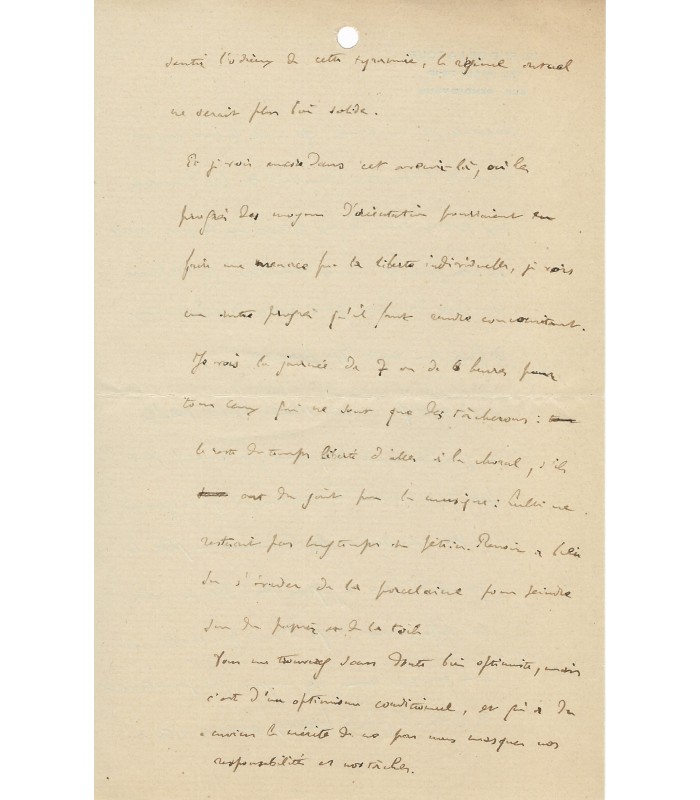 senti l'odieux de cette tyrannie, le régime actuel
ne serait plus loin solide.
Et je vois encore dans cet avenir-là, où les
progrès des moyens d'orientation pourraient en
faire une menace pour la liberté individuelle, je vois
un autre progrès qu'il faut rendre concomitant.
Je vois la journée de 7 ou de 6 heures pour
tous ceux qui ne sont que des tâcherons :
le reste du temps liberté d'aller à la chorale, s'ils
ont du goût pour la musique :
pas longtemps un Renoir a
su s'évader de la porcelaine pour peindre
sur du papier et de la toile
Vous me trouverez sans doute bien optimiste, mais
c'est d'un optimisme conditionnel, et qui a du
moins le mérite de ne pas nous masquer nos
responsabilités et nos tâches.